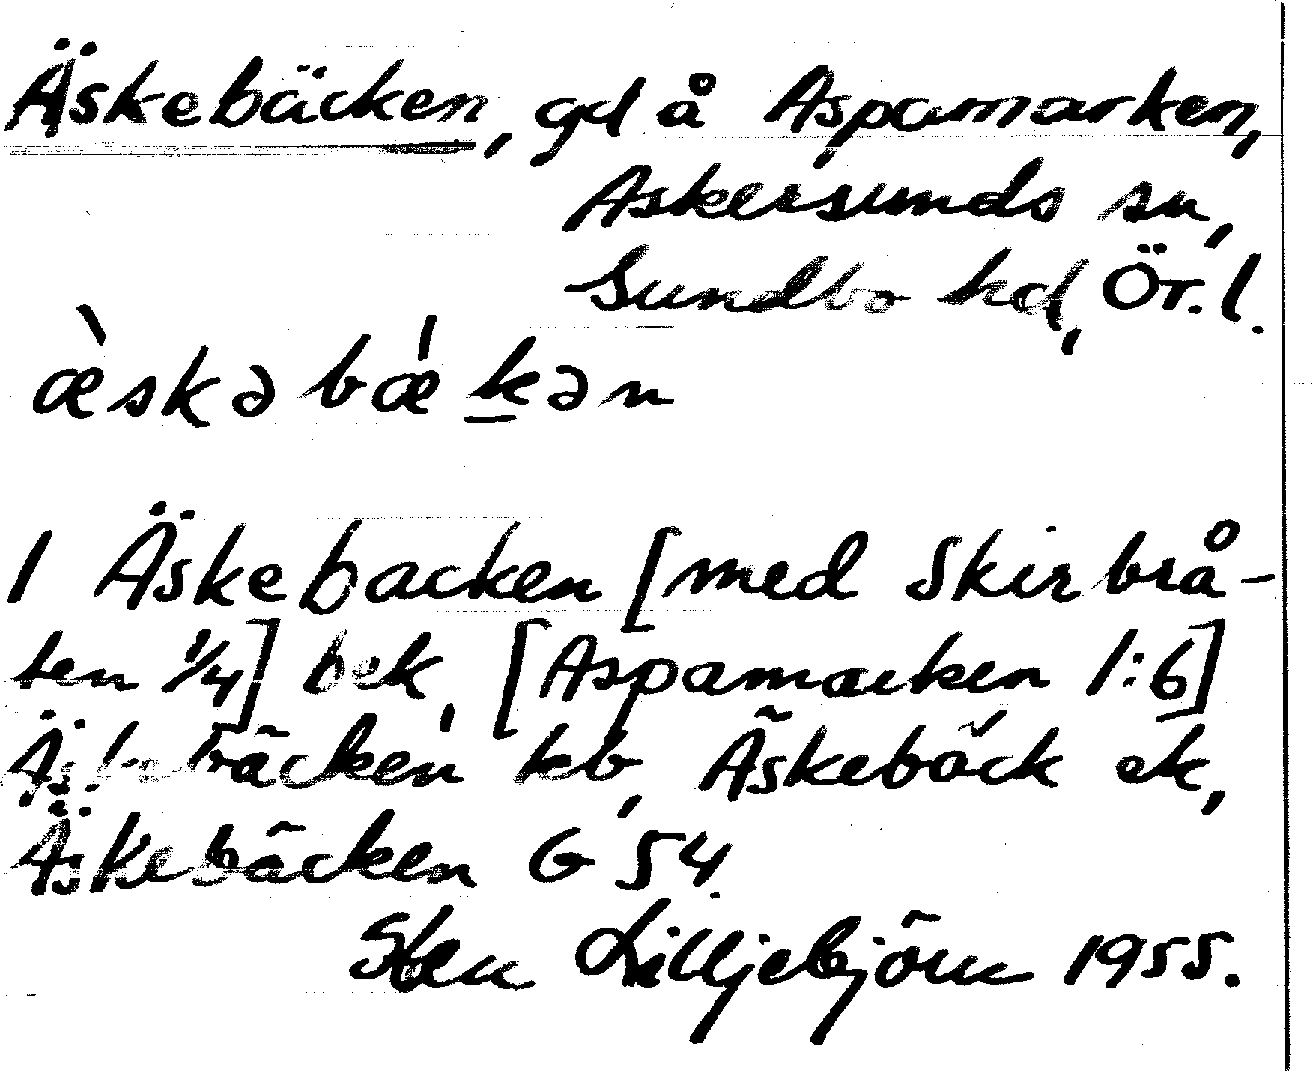 Äskebäcken, gd å Aspamarken,
Askersunds sn,
Sundbo hd, Ör. l.
æ̀skə bǽ k̲ən
1 Äskebacken [med Skirbrå-
ten 1/4] bek, [Aspamarken 1:6]
Äskebäcken kb, Äskebäck ek,
Äskebäcken G 54.
Sten Lilljebjörn 1955.